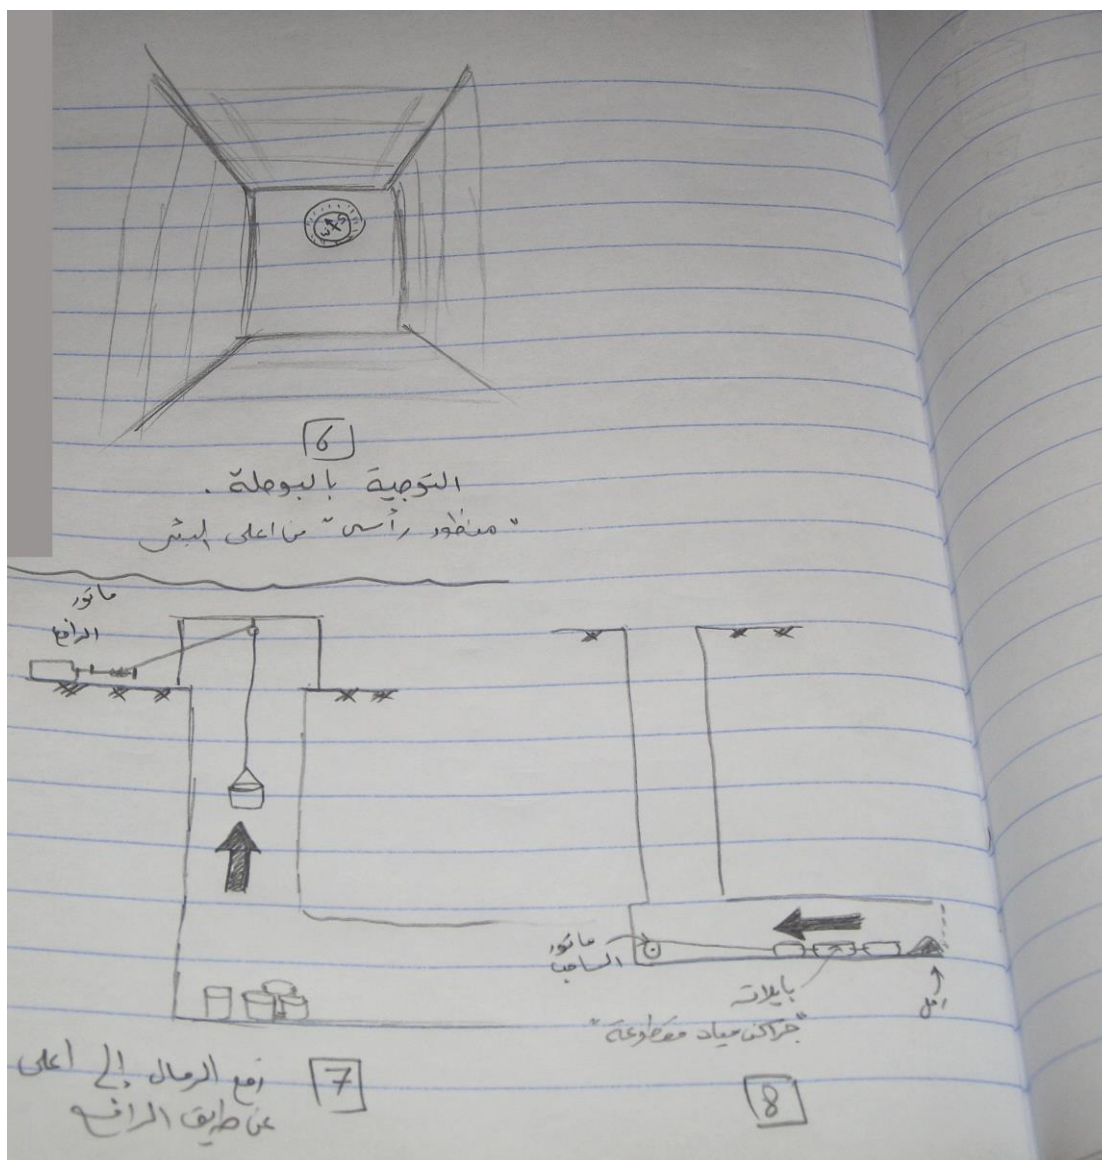 6
التوجية بالبوصلة .
"منظور رأسى" من اعلى البئر
ماتور
الرافع
7
رفع الرمال إلى أعلى
عن طريق الرافع
ماتور
الساحب
بايلات
"جراكن مياه مقطوعة"
رمل
8